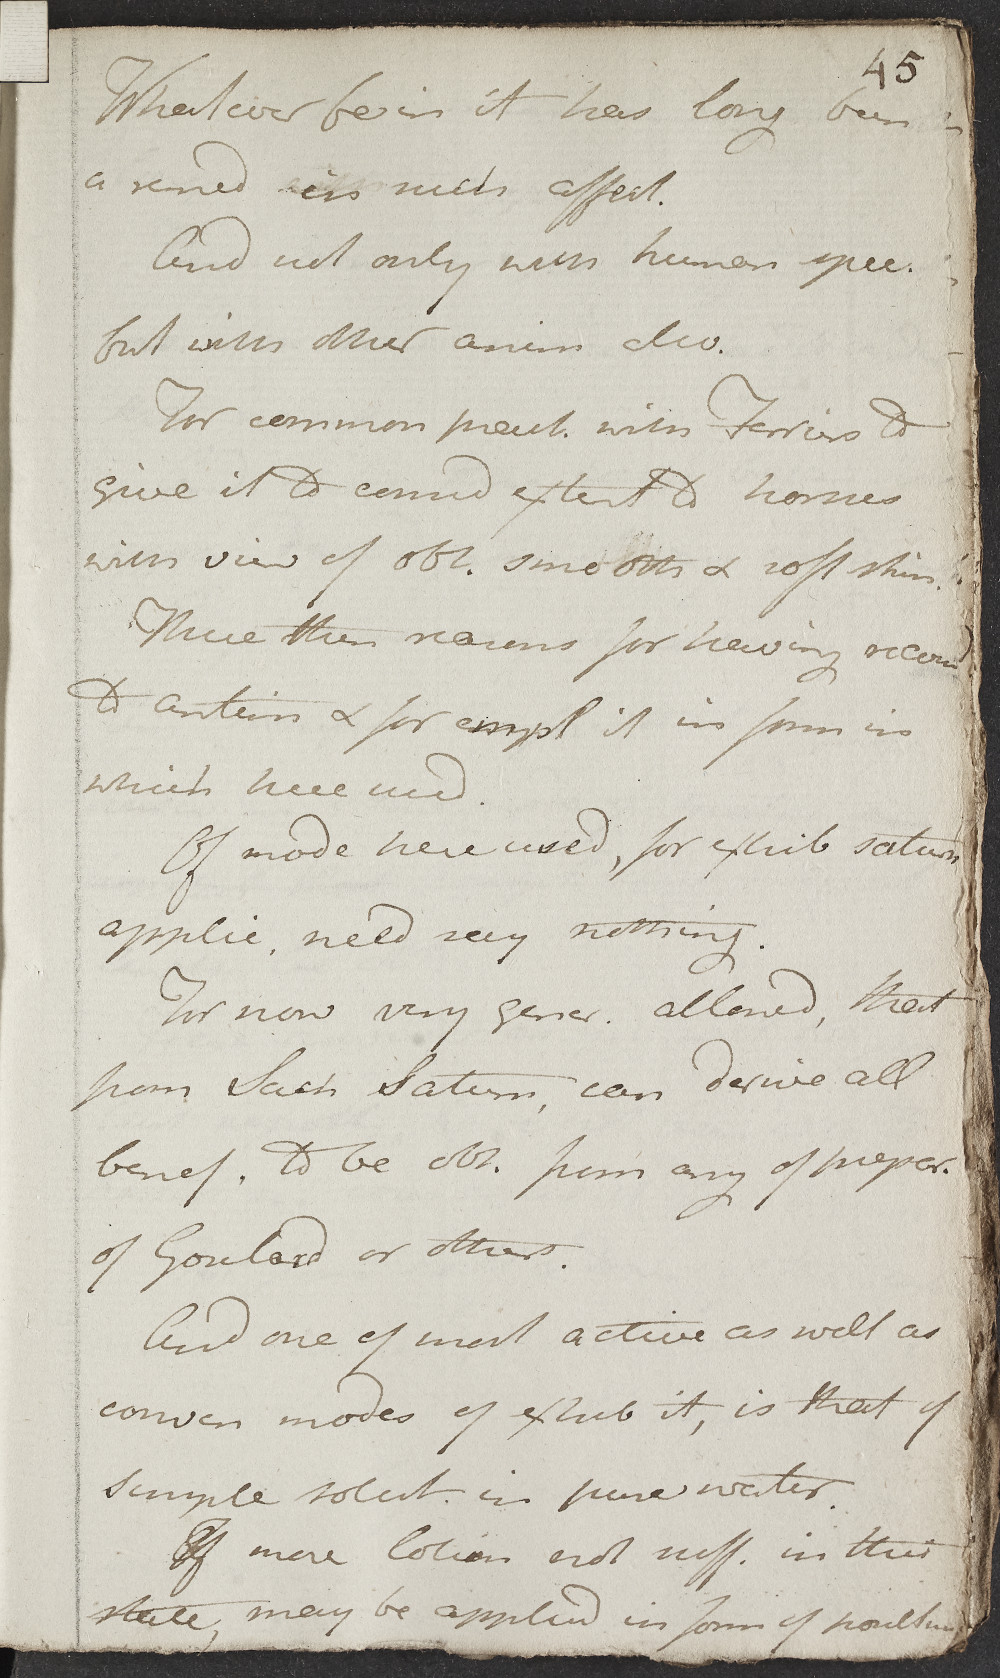 45
Whatever be in it has long been
a remed in such affect.
And not only with human spec.
but with other anim also.
For common pract. with Ferriers to
give it to consid extent to horses
with view of obt. smooth & soft skin.
These then reasons for having recours
to antim & for empl it in form in
which here used.
Of mode here used, for exhib saturn
applic, need say nothing.
For now very gener. allowed, that
from Sach Saturn, can derive all
benef. to be obt. from any of prepar.
of Goulard or others.
And one of most active as well as
conven modes of exhib it, is that of
simple solut. in pure water.
If mere lotion not suff. in this
state, may be applied in form of poultice